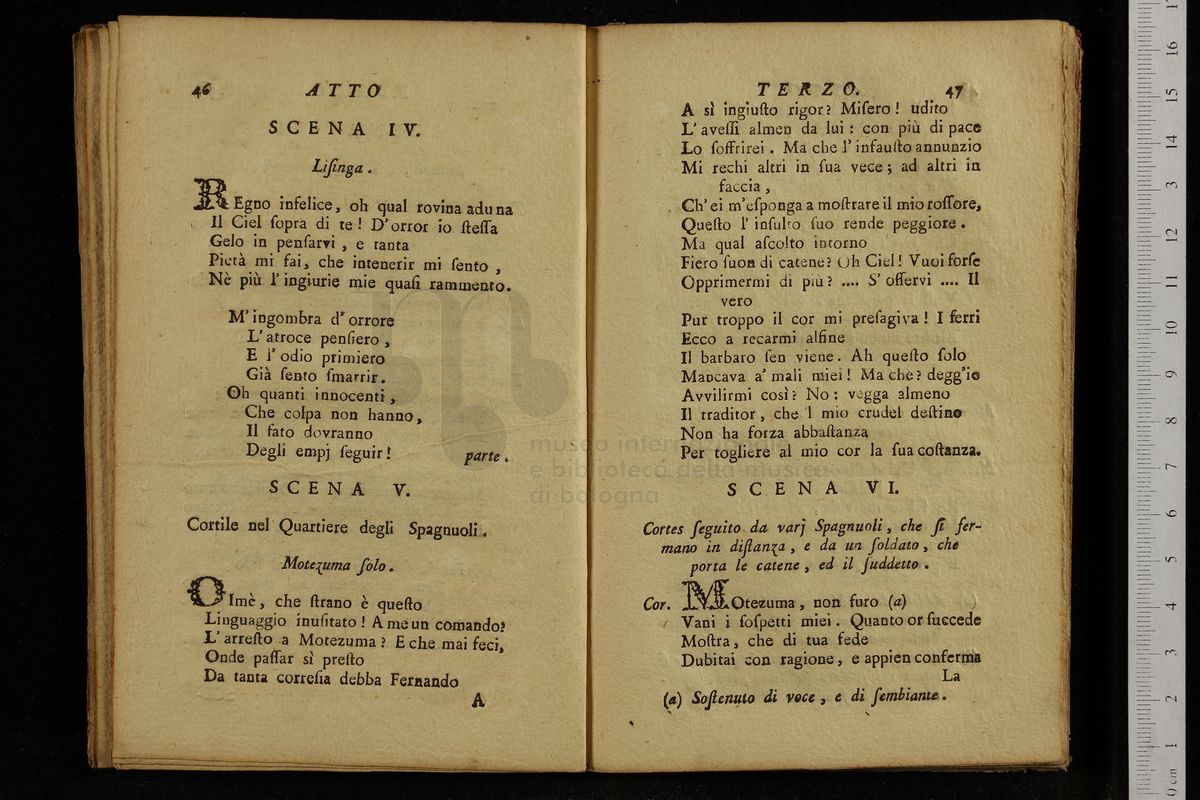 46 ATTO
SCENA IV.
Liſinga.
REgno infelice, oh qual rovina aduna
Il Ciel ſopra di te! D'orror io ſteſſa
Gelo in penſarvi, e tanta
Pietà mi fai, che intenerir mi ſento,
Nè più l'ingiurie mie quaſi rammento.
M'ingombra d'orrore
L'atroce penſiero,
E l'odio primiero
Già ſento ſmarrir.
Oh quanti innocenti,
Che colpa non hanno,
Il fato dovranno
Degli empj ſeguir! parte.
SCENA V.
Cortile nel Quartiere degli Spagnuoli.
Motezuma ſolo.
OImè, che ſtrano è queſto
Linguaggio inuſitato! A me un comando?
L'arreſto a Motezuma? E che mai feci,
Onde paſſar sì preſto
Da tanta corteſia debba Fernando
A
TERZO. 47
A sì ingiuſto rigor? Miſero! udito
L'aveſſi almen da lui: con più di pace
Lo ſoffrirei. Ma che l'infauſto annunzio
Mi rechi altri in ſua vece; ad altri in
faccia,
Ch'ei m'eſponga a moſtrare il mio roſſore,
Queſto l'inſulto ſuo rende peggiore.
Ma qual aſcolto intorno
Fiero ſuon di catene? Oh Ciel! Vuoi forſe
Opprimermi di più? .... S'oſſervi .... Il
vero
Pur troppo il cor mi preſagiva! I ferri
Ecco a recarmi alfine
Il barbaro ſen viene. Ah queſto ſolo
Mancava a' mali miei! Ma che? degg'io
Avvilirmi così? No: vegga almeno
Il traditor, che 'l mio crudel deſtino
Non ha forza abbaſtanza
Per togliere al mio cor la ſua coſtanza.
SCENA VI.
Cortes ſeguito da varj Spagnuoli, che ſi fer-
mano in diſtanza, e da un ſoldato, che
porta le catene, ed il ſuddetto.
Cor. MOtezuma, non furo (a)
Vani i ſoſpetti miei. Quanto or ſuccede
Moſtra, che di tua fede
Dubitai con ragione, e appien conferma
La
(a) Soſtenuto di voce, e di ſembiante.
museo internazionale
e biblioteca della musica
di bologna
0 cm 1 2 3 4 5 6 7 8 9 10 11 12 13 14 15 16 17